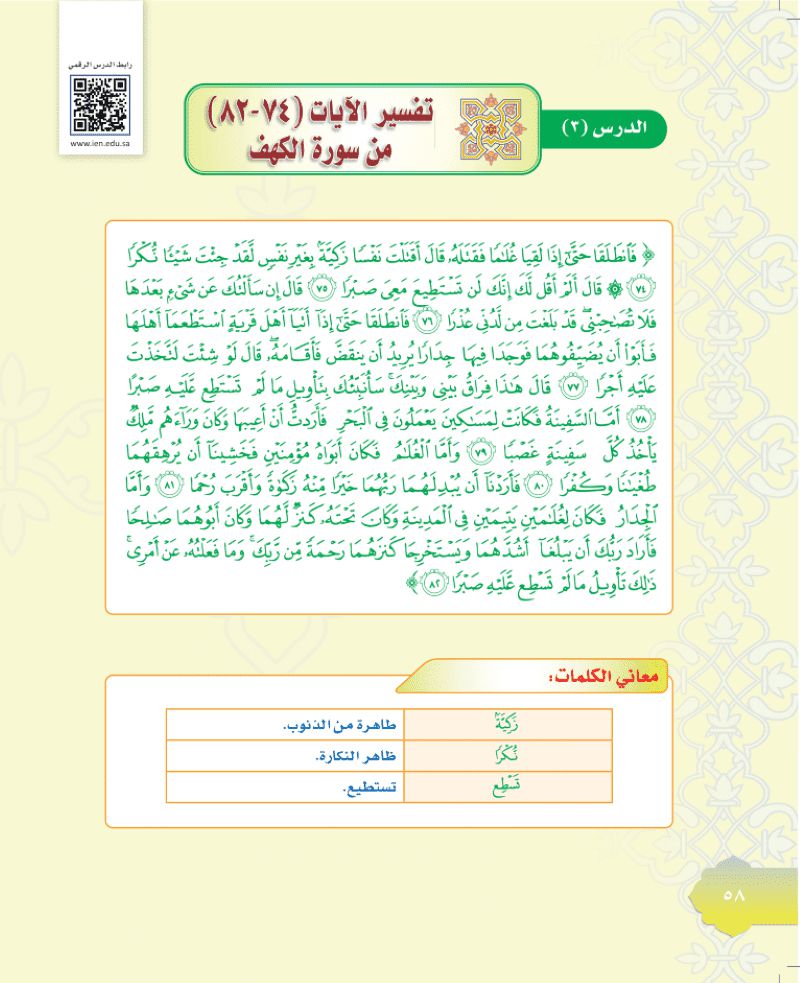 رابط الدرس الرقمي
www.ien.edu.sa
الدرس (٣)
تفسير الآيات (٧٤-٨٢)
من سورة الكهف
﴿ فَٱنطَلَقَا حَتَّىٰٓ إِذَا لَقِيَا غُلَٰمٗا فَقَتَلَهُۥ قَالَ أَقَتَلۡتَ نَفۡسٗا زَكِيَّةَۢ بِغَيۡرِ نَفۡسٖ لَّقَدۡ جِئۡتَ شَيۡـٔٗا نُّكۡرٗا
٧٤ ۞ قَالَ أَلَمۡ أَقُل لَّكَ إِنَّكَ لَن تَسۡتَطِيعَ مَعِيَ صَبۡرٗا ٧٥ قَالَ إِن سَأَلۡتُكَ عَن شَيۡءِۭ بَعۡدَهَا
فَلَا تُصَٰحِبۡنِيۖ قَدۡ بَلَغۡتَ مِن لَّدُنِّي عُذۡرٗا ٧٦ فَٱنطَلَقَا حَتَّىٰٓ إِذَآ أَتَيَآ أَهۡلَ قَرۡيَةٍ ٱسۡتَطۡعَمَآ أَهۡلَهَا
فَأَبَوۡاْ أَن يُضَيِّفُوهُمَا فَوَجَدَا فِيهَا جِدَارٗا يُرِيدُ أَن يَنقَضَّ فَأَقَامَهُۥۖ قَالَ لَوۡ شِئۡتَ لَتَّخَذۡتَ
عَلَيۡهِ أَجۡرٗا ٧٧ قَالَ هَٰذَا فِرَاقُ بَيۡنِي وَبَيۡنِكَۚ سَأُنَبِّئُكَ بِتَأۡوِيلِ مَا لَمۡ تَسۡتَطِع عَّلَيۡهِ صَبۡرًا
٧٨ أَمَّا ٱلسَّفِينَةُ فَكَانَتۡ لِمَسَٰكِينَ يَعۡمَلُونَ فِي ٱلۡبَحۡرِ فَأَرَدتُّ أَنۡ أَعِيبَهَا وَكَانَ وَرَآءَهُم مَّلِكٞ
يَأۡخُذُ كُلَّ سَفِينَةٍ غَصۡبٗا ٧٩ وَأَمَّا ٱلۡغُلَٰمُ فَكَانَ أَبَوَاهُ مُؤۡمِنَيۡنِ فَخَشِينَآ أَن يُرۡهِقَهُمَا
طُغۡيَٰنٗا وَكُفۡرٗا ٨٠ فَأَرَدۡنَآ أَن يُبۡدِلَهُمَا رَبُّهُمَا خَيۡرٗا مِّنۡهُ زَكَوٰةٗ وَأَقۡرَبَ رُحۡمٗا ٨١ وَأَمَّا
ٱلۡجِدَارُ فَكَانَ لِغُلَٰمَيۡنِ يَتِيمَيۡنِ فِي ٱلۡمَدِينَةِ وَكَانَ تَحۡتَهُۥ كَنزٞ لَّهُمَا وَكَانَ أَبُوهُمَا صَٰلِحٗا
فَأَرَادَ رَبُّكَ أَن يَبۡلُغَآ أَشُدَّهُمَا وَيَسۡتَخۡرِجَا كَنزَهُمَا رَحۡمَةٗ مِّن رَّبِّكَۚ وَمَا فَعَلۡتُهُۥ عَنۡ أَمۡرِيۚ
ذَٰلِكَ تَأۡوِيلُ مَا لَمۡ تَسۡطِع عَّلَيۡهِ صَبۡرٗا ٨٢ ﴾
معاني الكلمات:
زَكِيَّةَۢ طاهرة من الذنوب.
نُّكۡرٗا ظاهر النكارة.
تَسۡطِع تستطيع.
٥٨